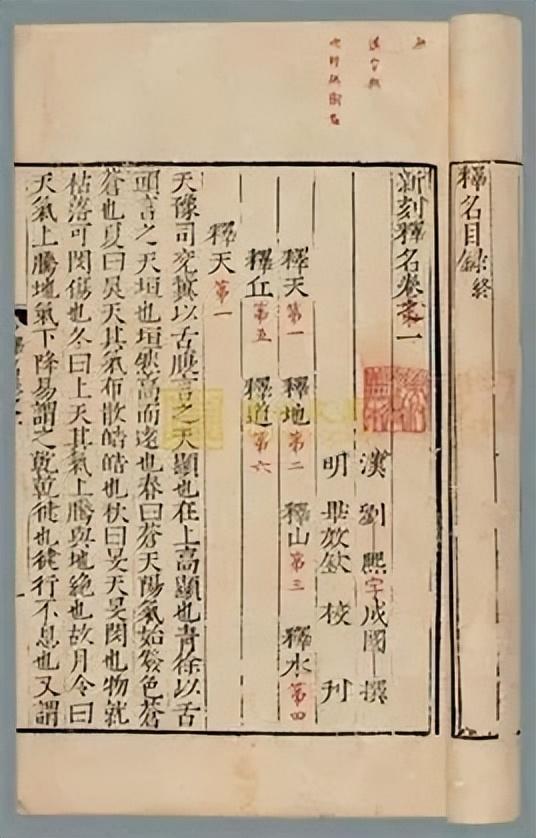 釋名目錄終
新刻釋名卷第一
漢 劉 熙字成國 撰
明 畢效欽 校 刊
釋天第一 釋地第二 釋山第三 釋水第四
釋丘第五 釋道第六
釋天第一
天豫司兗冀以舌腹言之天顯也在上高顯也青徐以舌
頭言之天垣也垣然高而遠也春曰蒼天陽氣始發色蒼
蒼也夏曰昊天其氣布散皓皓也秋曰旻天旻閔也物就
枯落可閔傷也冬曰上天其氣上騰與地絶也故月令曰
天氣上騰地氣下降易謂之乾乾健也健行不息也又謂